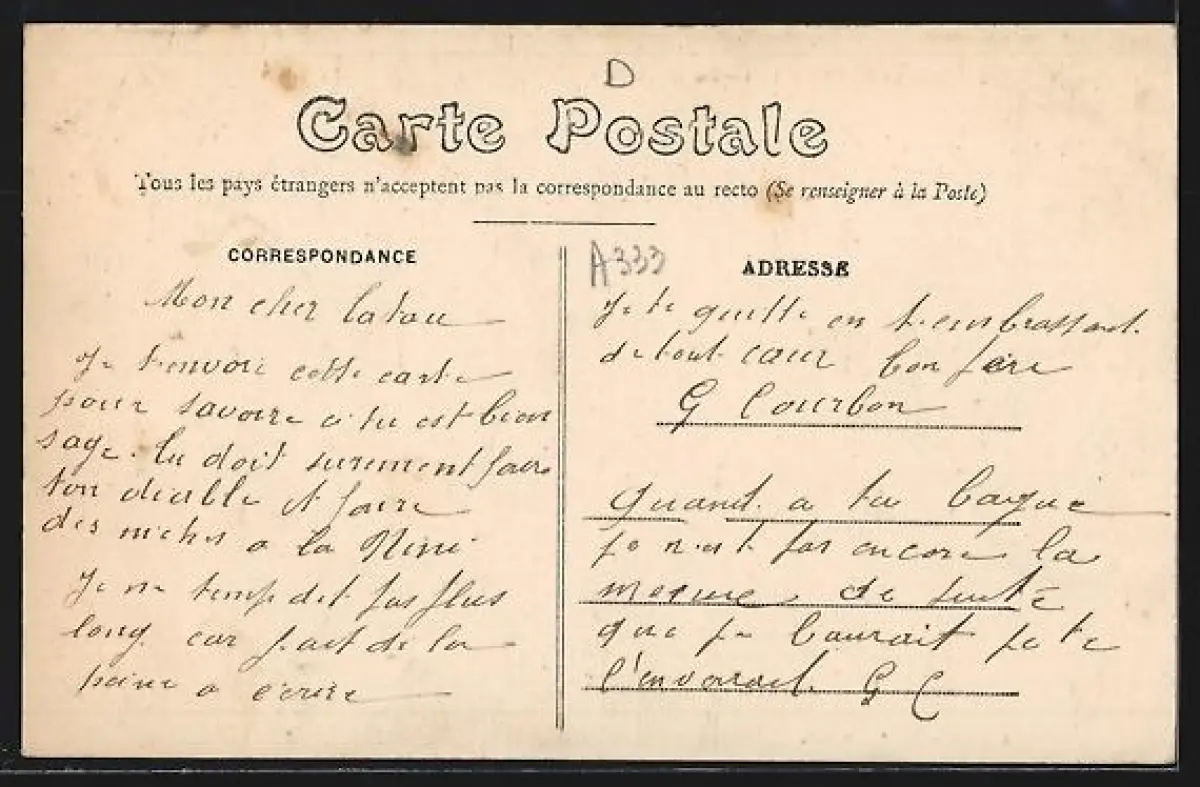 D
Carte Postale
Tous les pays étrangers n'acceptent pas la correspondance au recto (Se renseigner à la Poste)
CORRESPONDANCE
Mon cher
Je t'envoie cette carte
pour savoire ci tu est bien
sage. Tu doit surement faire
ton diable et faire
des niches a la Nini
Je ne temp dit pas plus
long car j'ait de la
peine a écrire
A333
ADRESSE
Je te quitte en t'embrassant
de tout cœur ton père
G Courbon
quant a ta bague
je n'est pas encore la
mesure de suite
que je l'aurait je te
l'enverrait G C